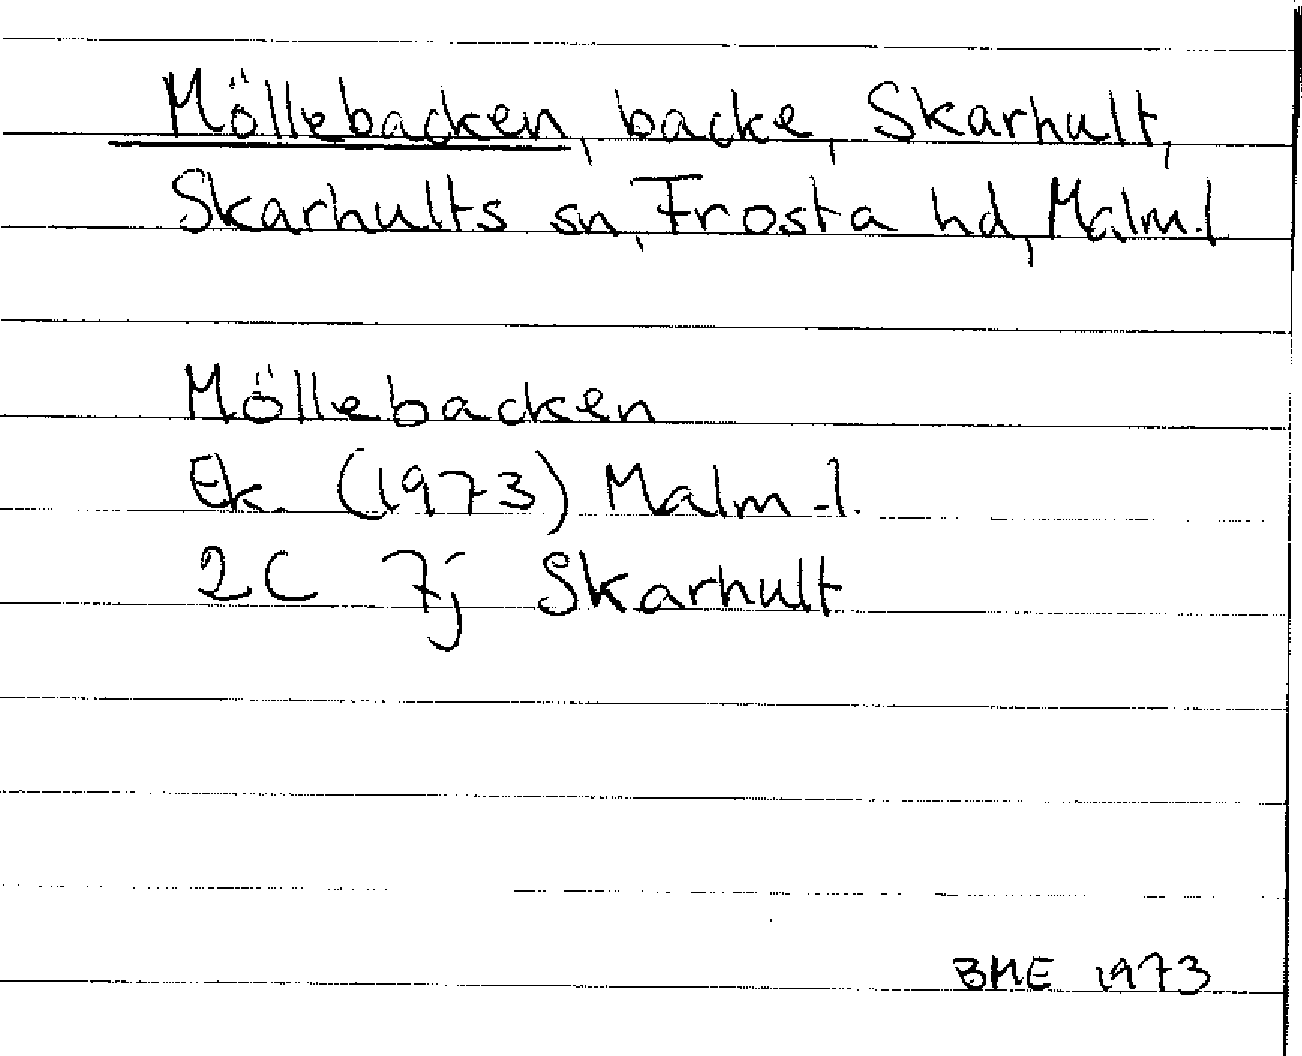 Möllebacken, backe, Skarhult,
Skarhults sn, Frosta hd, Malm.l
Möllebacken
Ek. (1973) Malm.l.
2C 7j Skarhult
BME 1973